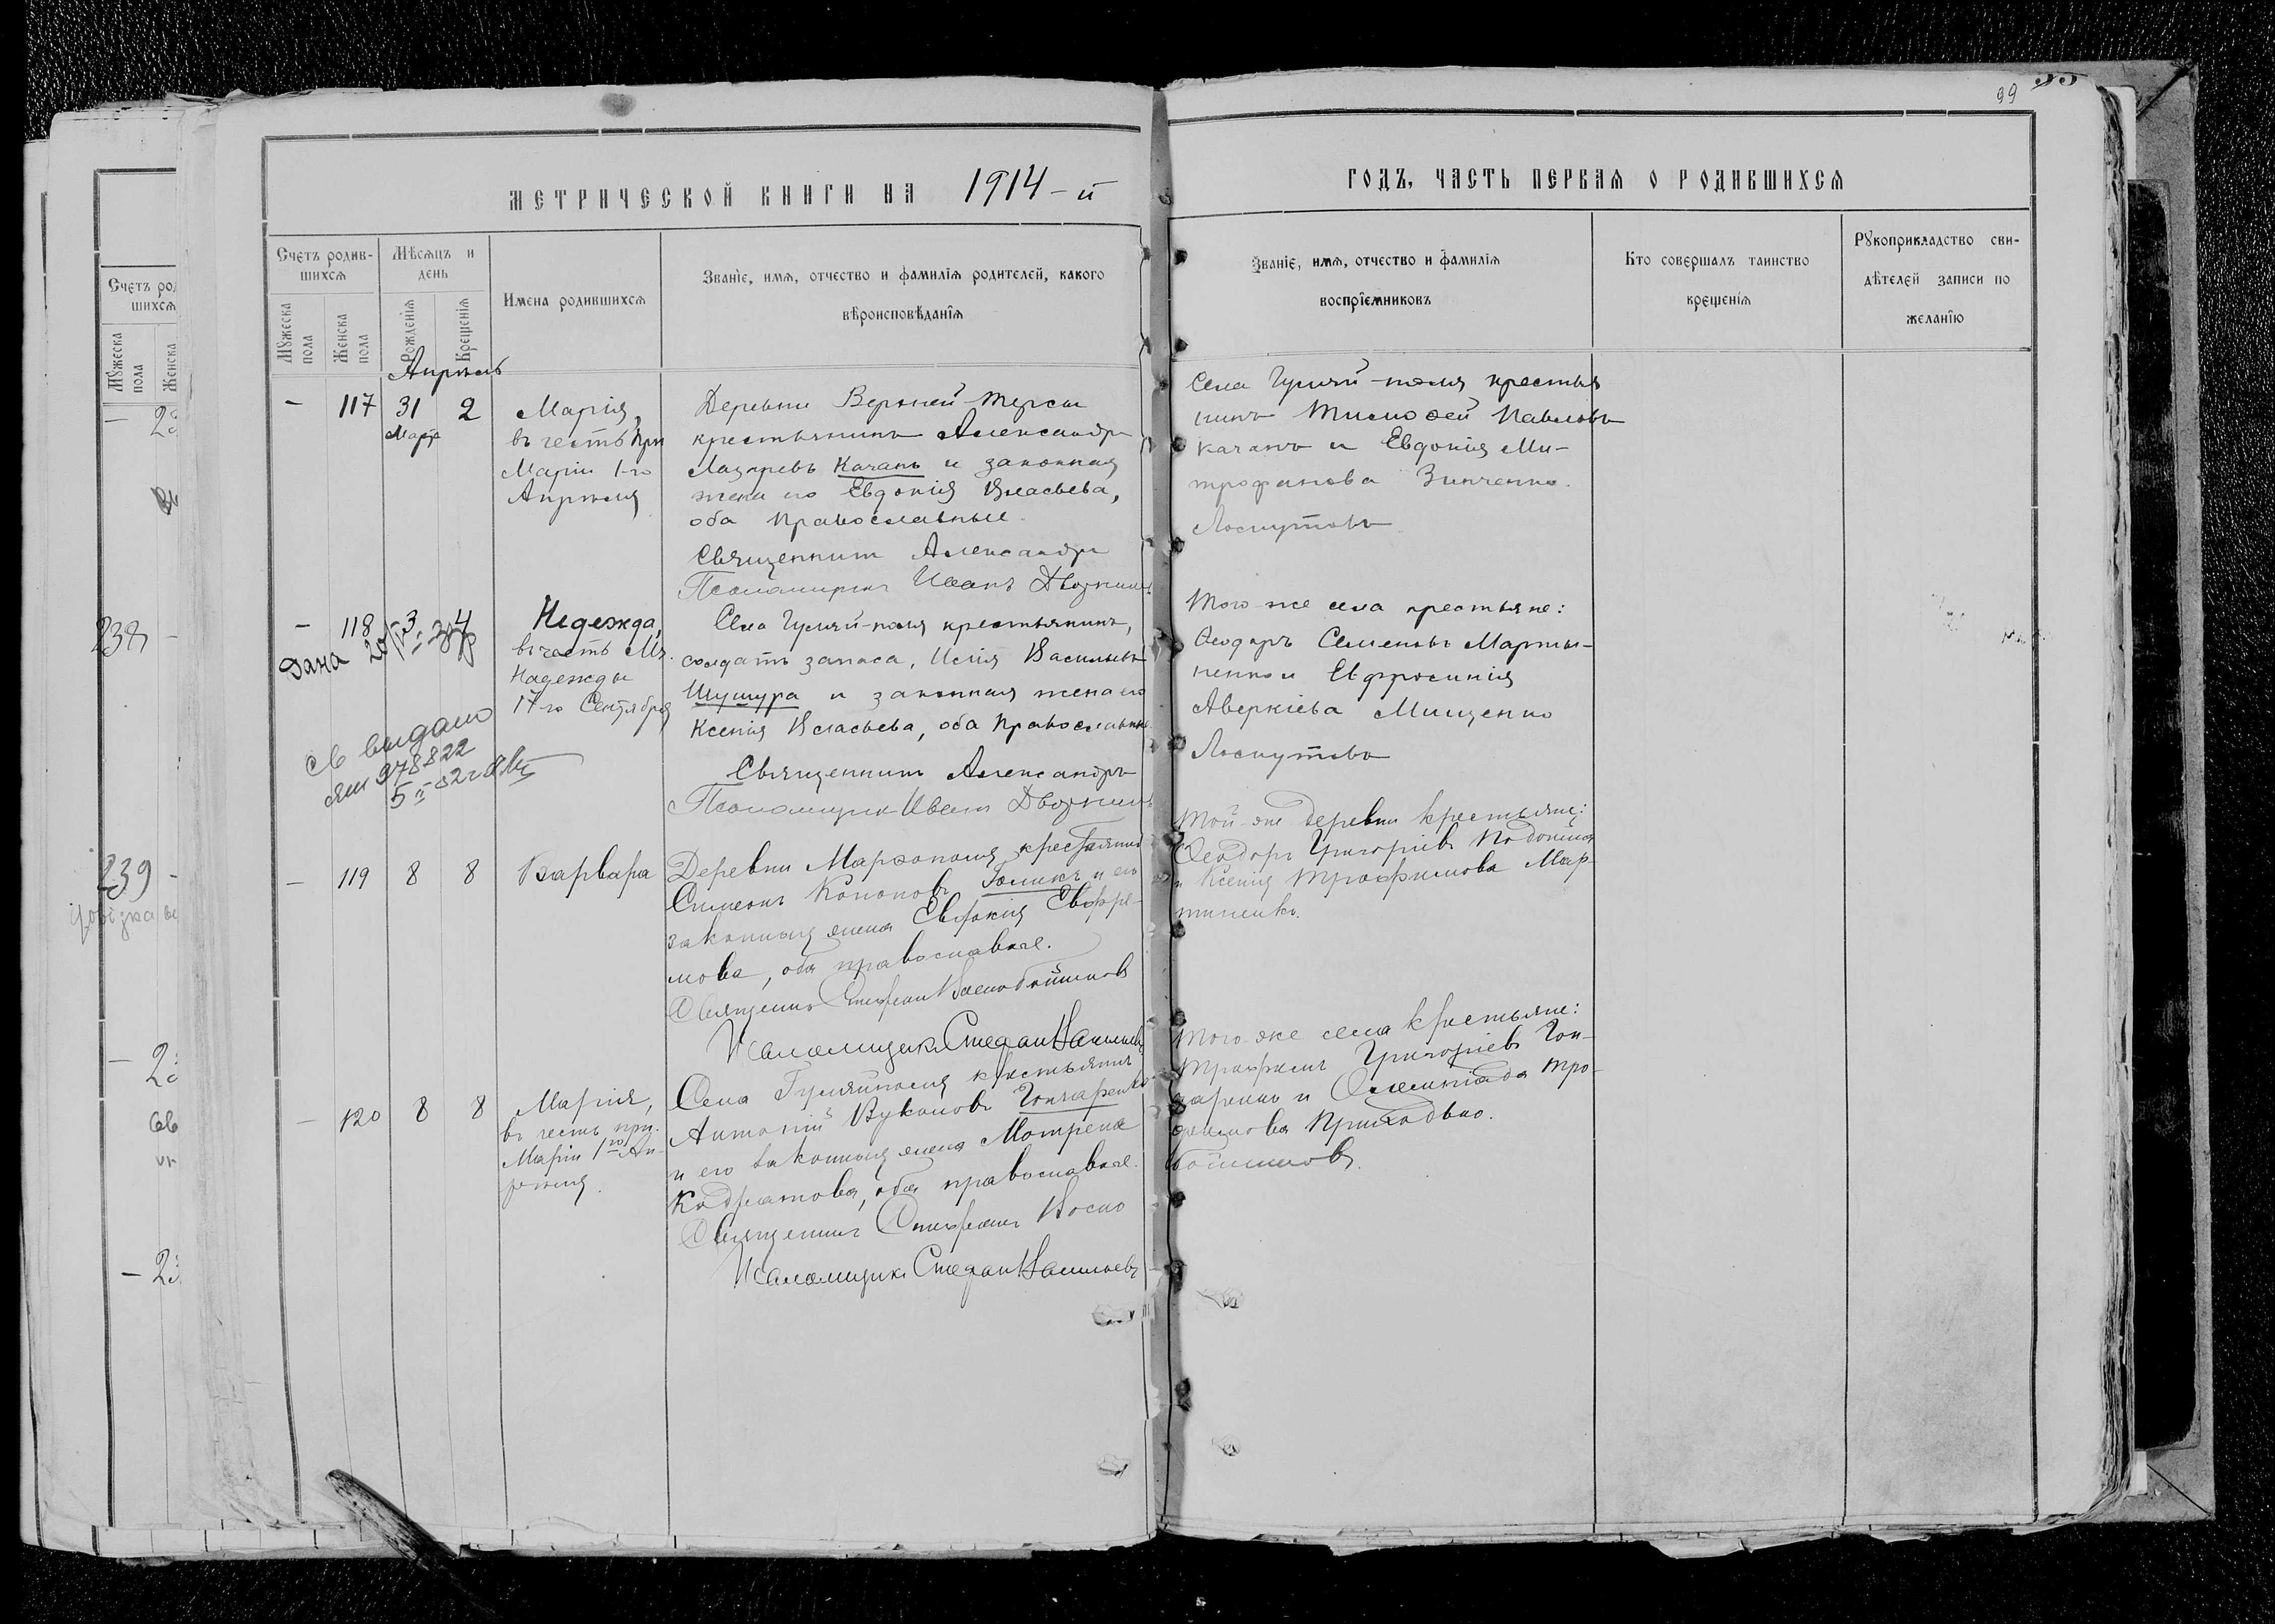 99
МЕТРИЧЕСКОЙ КНИГИ НА 1914-й
ГОДЪ, ЧАСТЬ ПЕРВАЯ О РОДИВШИХСЯ
Счетъ родив-
шихся
Мужеска
пола
Женска
пола
Мѣсяцъ и
день
Рожденія
Крещенія
Имена родившихся
Званіе, имя, отчество и фамилія родителей, какого
вѣроисповѣданія
Званіе, имя, отчество и фамилія
воспріемниковъ
Кто совершалъ таинство
крещенія
Рукоприкладство сви-
дѣтелей записи по
желанію
Апрѣль
- 117 31 2
Марта
Марія,
въ честь Прп
Маріи 1-го
Апрѣля
Деревни Верхней-Терсы
крестьянинъ Александръ
Лазаревъ Качанъ и законная
жена его Евдокія Власьева,
оба православные.
Священникъ Александръ
Псаломщикъ Иванъ
Села Гуляй-поля, крестья
нинъ Тимоѳей Павловъ
Качанъ и Евдокія Ми-
трофанова Зинченко.
Лоскутовъ
- 118 3 4
Дана
Св выдано
978822
Надежда,
въ честь Мч.
Надежды
17-го Сентября
Села Гуляй-поля крестьянинъ,
солдатъ запаса, Исаія Васильевъ
Шушура и законная жена его
Ксенія Власьева, оба православные.
Священникъ Александръ
Псаломщикъ Иванъ
Того-же села крестьяне:
Ѳеодоръ Семеновъ Марты-
ненко и Евфросинія
Аверкіева Мищенко
Лоскутовъ
- 119 8 8
Варвара
Деревни Марѳополя крестьянинъ
Симеонъ Кононовъ Голикъ и его
законная жена Евдокія Евфре-
мова, оба православные.
Священникъ Стефанъ
Псаломщикъ Стефанъ
Той-же деревни крестьяне:
Ѳеодоръ Григоріевъ
и Ксенія Трофимова Мар-
тиненко.
- 120 8 8
Марія,
въ честь прп.
Маріи 1го Ап-
рѣля.
Села Гуляйполя крестьянинъ
Антоній Вуколовъ Гончаренко
и его законная жена Мотрена
Кодратова, оба православные.
Священникъ Стефанъ
Псаломщикъ Стефанъ
Того-же села крестьяне:
Трофимъ Григоріевъ Гон-
чаренко и Олимпіада Тро-
фимова Приходько.
Счетъ род
шихся
Мужеска
пола
Женска
238 -
239 -